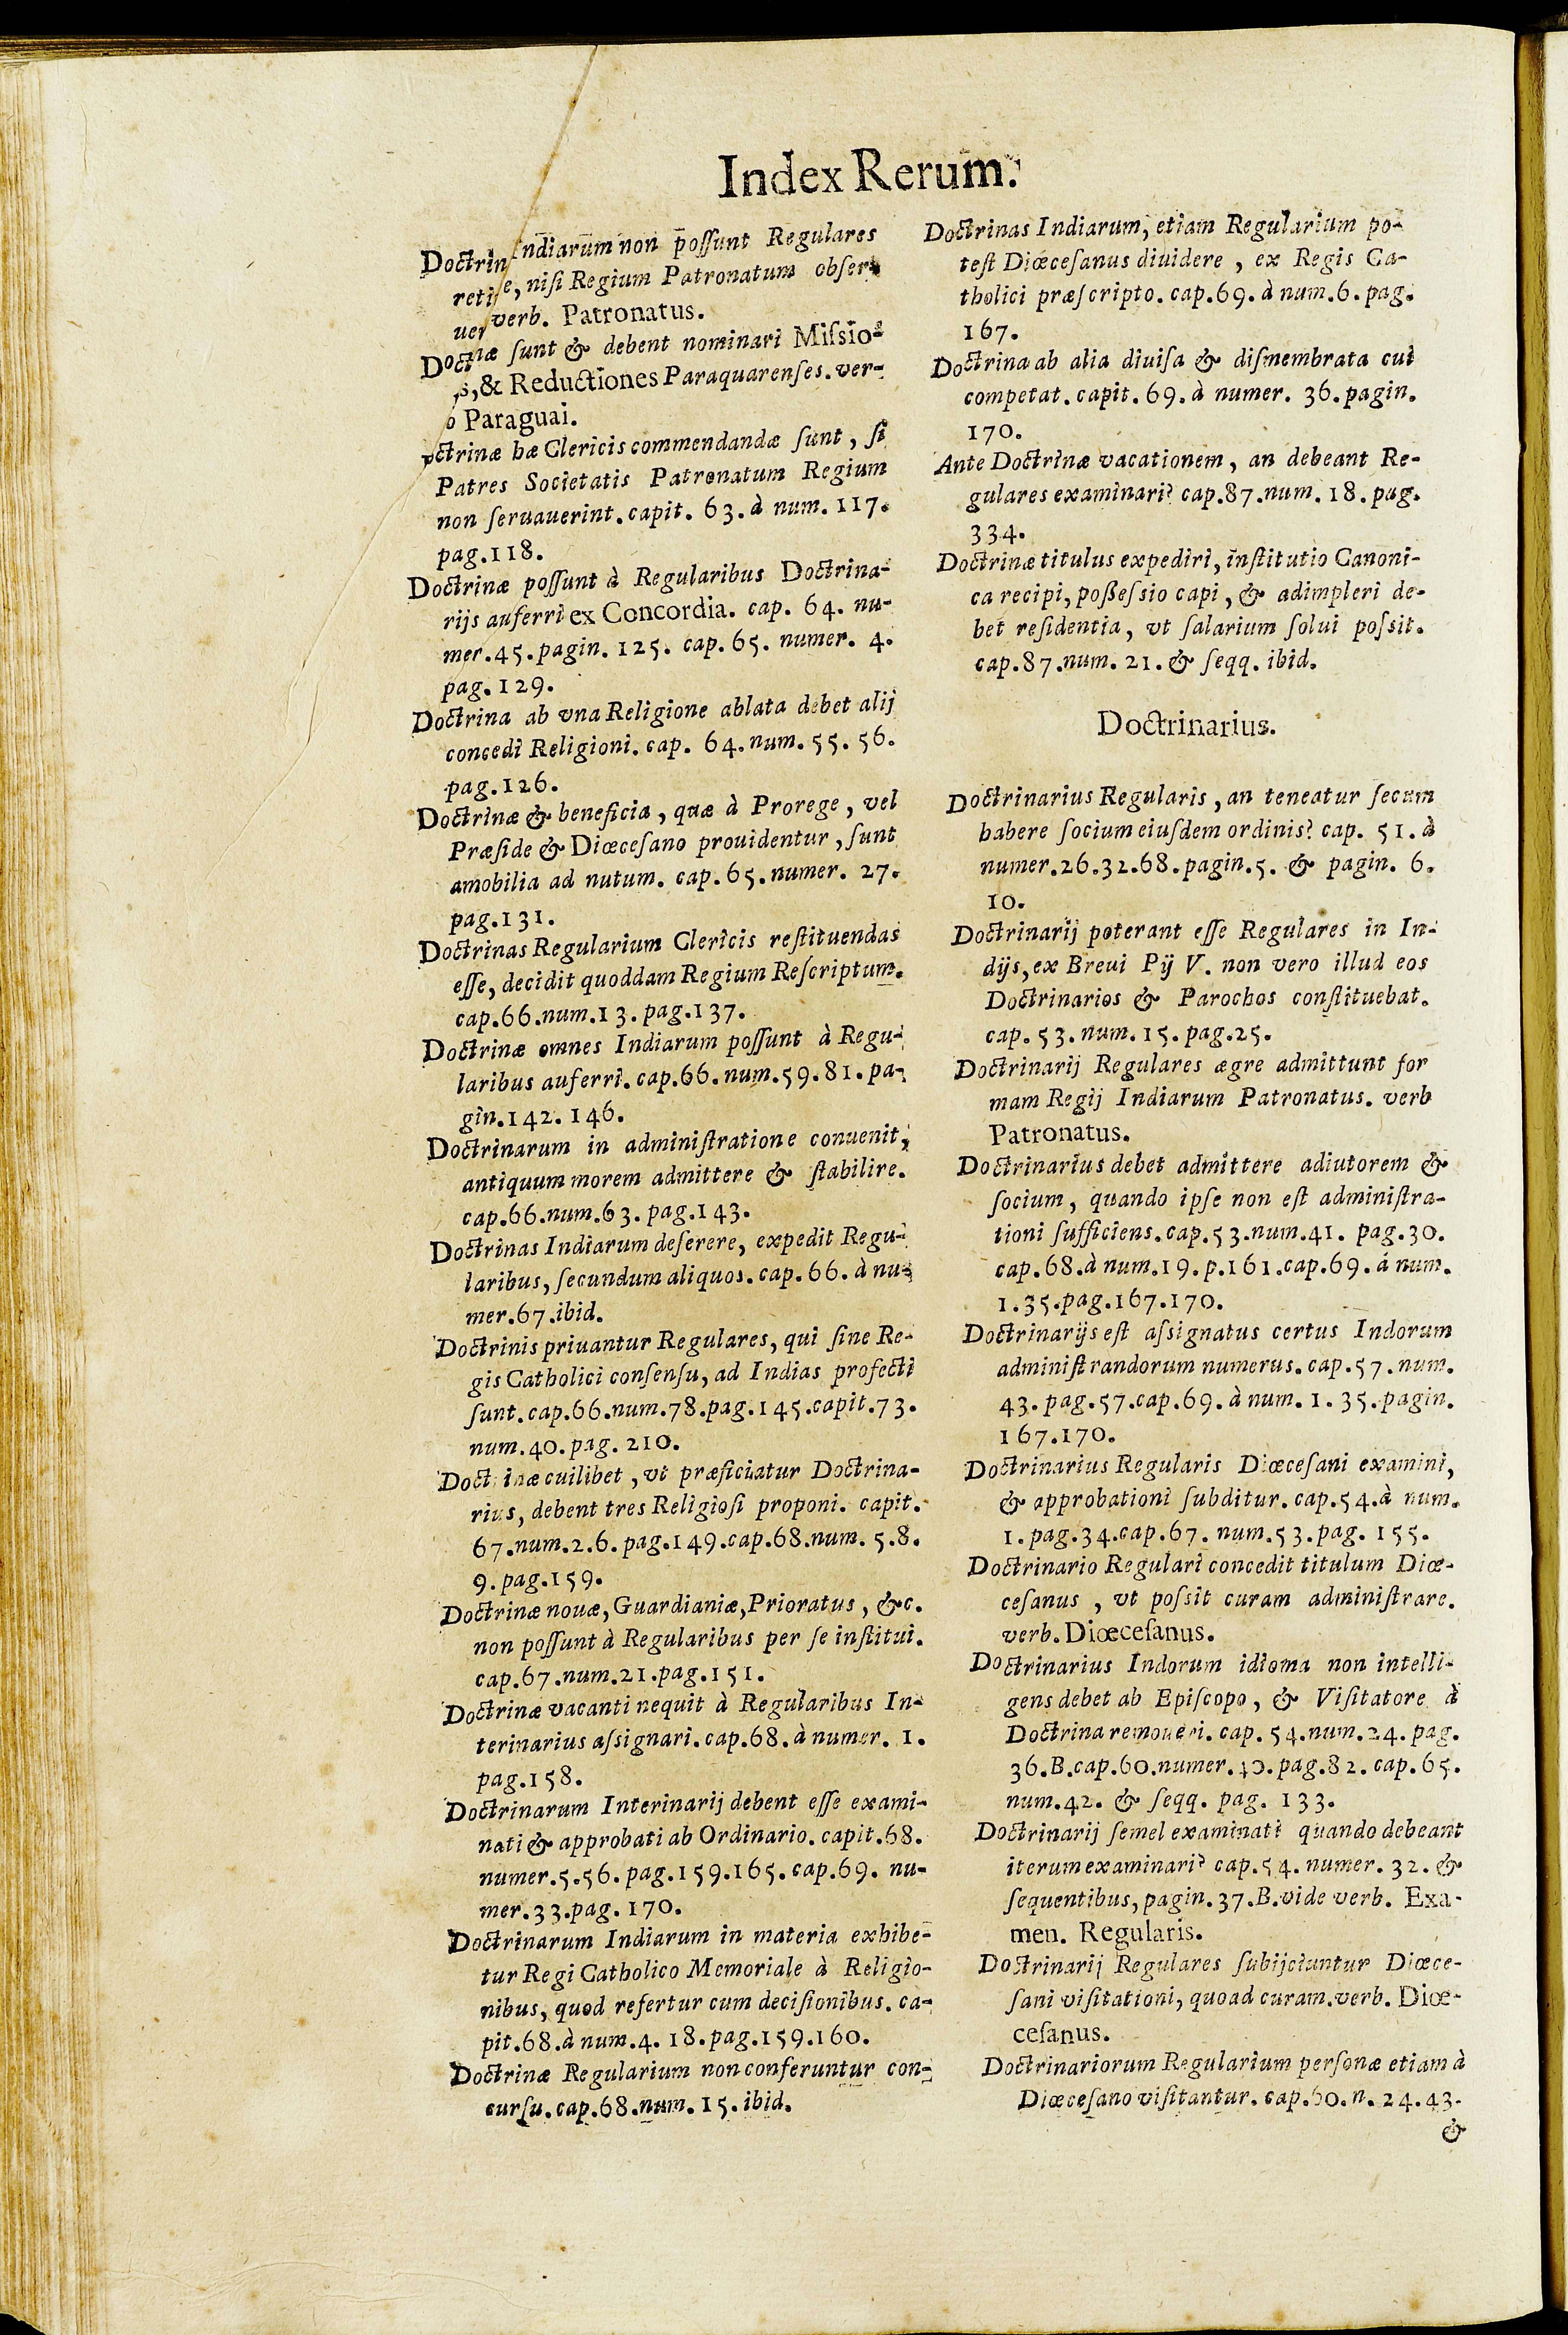 Index Rerum.
Doctrin ndiarum non possunt Regulares
reti e, nisi Regium Patronatum obser-
uer verb. Patronatus.
Doct iæ sunt & debent nominari Missio-
s, & Reductiones Paraquarenses. ver-
o Paraguai.
octrinæ hæ Clericis commendandæ sunt, si
Patres Societatis Patronatum Regium
non seruauerint. capit. 63. à num. 117.
pag. 118.
Doctrinæ possunt à Regularibus Doctrina-
rijs auferri ex Concordia. cap. 64. nu-
mer. 45. pagin. 125. cap. 65. numer. 4.
pag. 129.
Doctrina ab vna Religione ablata debet alij
concedi Religioni. cap. 64. num. 55. 56.
pag. 126.
Doctrinæ & beneficia, quæ à Prorege, vel
Præside & Diœcesano prouidentur, sunt
amobilia ad nutum. cap. 65. numer. 27.
pag. 131.
Doctrinas Regularium Clericis restituendas
esse, decidit quoddam Regium Rescriptum.
cap. 66. num. 13. pag. 137.
Doctrinæ omnes Indiarum possunt à Regu-
laribus auferri. cap. 66. num. 59. 81. pa-
gin. 142. 146.
Doctrinarum in administratione conuenit,
antiquum morem admittere & stabilire.
cap. 66. num. 63. pag. 143.
Doctrinas Indiarum deserere, expedit Regu-
laribus, secundum aliquos. cap. 66. à nu-
mer. 67. ibid.
Doctrinis priuantur Regulares, qui sine Re-
gis Catholici consensu, ad Indias profecti
sunt. cap. 66. num. 78. pag. 145. capit. 73.
num. 40. pag. 210.
Doct inæ cuilibet, vt præficiatur Doctrina-
rius, debent tres Religiosi proponi. capit.
67. num. 2. 6. pag. 149. cap. 68. num. 5. 8.
9. pag. 159.
Doctrinæ nouæ, Guardianiæ, Prioratus, &c.
non possunt à Regularibus per se institui.
cap. 67. num. 21. pag. 151.
Doctrinæ vacanti nequit à Regularibus In-
terinarius assignari. cap. 68. à numer. 1.
pag. 158.
Doctrinarum Interinarij debent esse exami-
nati & approbati ab Ordinario. capit. 68.
numer. 5. 56. pag. 159. 165. cap. 69. nu-
mer. 33. pag. 170.
Doctrinarum Indiarum in materia exhibe-
tur Regi Catholico Memoriale à Religio-
nibus, quod refertur cum decisionibus. ca-
pit. 68. à num. 4. 18. pag. 159. 160.
Doctrinæ Regularium non conferuntur con-
cursu. cap. 68. num. 15. ibid.
Doctrinas Indiarum, etiam Regularium po-
test Diœcesanus diuidere, ex Regis Ca-
tholici præscripto. cap. 69. à num. 6. pag.
167.
Doctrina ab alia diuisa & dismembrata cui
competat. capit. 69. à numer. 36. pagin.
170.
Ante Doctrinæ vacationem, an debeant Re-
gulares examinari? cap. 87. num. 18. pag.
334.
Doctrinæ titulus expediri, institutio Canoni-
ca recipi, poßessio capi, & adimpleri de-
bet residentia, vt salarium solui possit.
cap. 87. num. 21. & seqq. ibid.
Doctrinarius.
Doctrinarius Regularis, an teneatur secum
habere socium eiusdem ordinis? cap. 51. à
numer. 26. 32. 68. pagin. 5. & pagin. 6.
10.
Doctrinarij poterant esse Regulares in In-
dijs, ex Breui Pij V. non vero illud eos
Doctrinarios & Parochos constituebat.
cap. 53. num. 15. pag. 25.
Doctrinarij Regulares ægre admittunt for
mam Regij Indiarum Patronatus. verb
Patronatus.
Doctrinarius debet admittere adiutorem &
socium, quando ipse non est administra-
tioni sufficiens. cap. 53. num. 41. pag. 30.
cap. 68. à num. 19. p. 161. cap. 69. á num.
1. 35. pag. 167. 170.
Doctrinarijs est assignatus certus Indorum
administrandorum numerus. cap. 57. num.
43. pag. 57. cap. 69. à num. 1. 35. pagin.
167. 170.
Doctrinarius Regularis Diœcesani examini,
& approbationi subditur. cap. 54. à num.
1. pag. 34. cap. 67. num. 53. pag. 155.
Doctrinario Regulari concedit titulum Diœ-
cesanus, vt possit curam administrare.
verb. Diœcesanus.
Doctrinarius Indorum idioma non intelli-
gens debet ab Episcopo, & Visitatore à
Doctrina remoueri. cap. 54. num. 24. pag.
36. B. cap. 60. numer. 40. pag. 82. cap. 65.
num. 42. & seqq. pag. 133.
Doctrinarij semel examinati quando debeant
iterum examinari? cap. 54. numer. 32. &
sequentibus, pagin. 37. B. vide verb. Exa-
men. Regularis.
Doctrinarij Regulares subijciuntur Diœce-
sani visitationi, quoad curam. verb. Diœ-
cesanus.
Doctrinariorum Regularium personæ etiam à
Diœcesano visitantur. cap. 60. n. 24. 43.
&